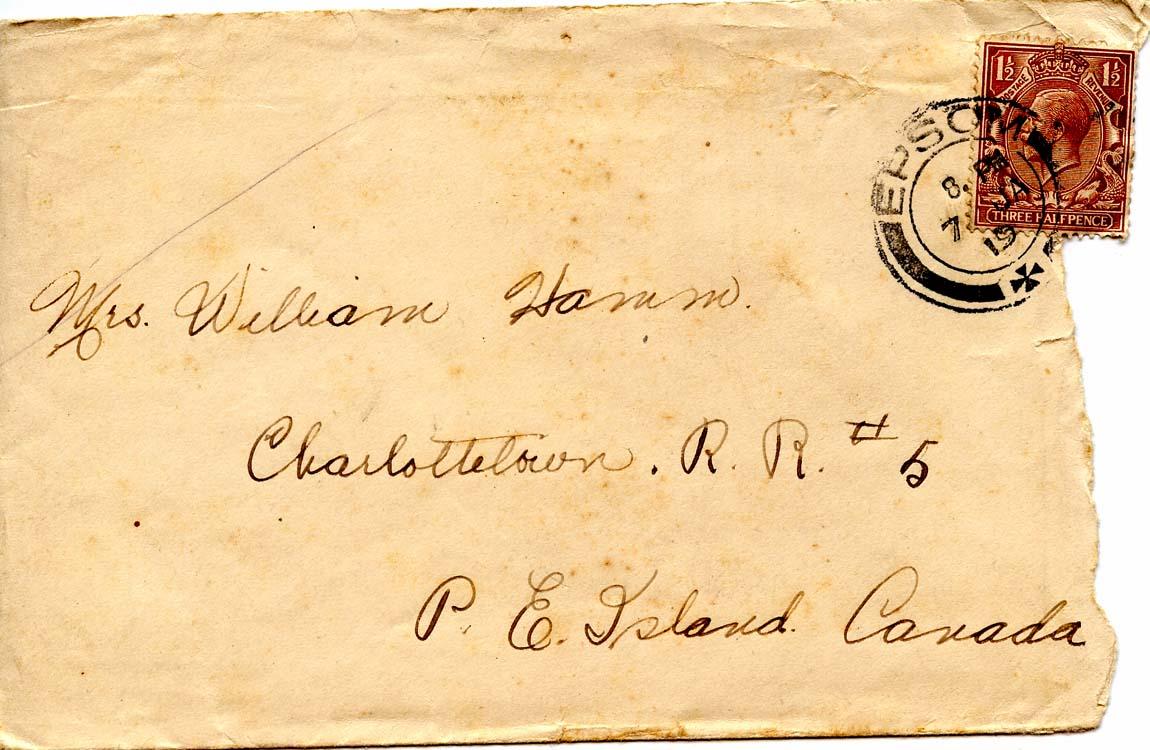 1½ 1½
POSTAGE REVENUE
THREE HALFPENCE
EPSOM
8. PM
7 JA
19
Mrs. William Hamm.
Charlottetown. R. R. # 5
P. E. Island. Canada